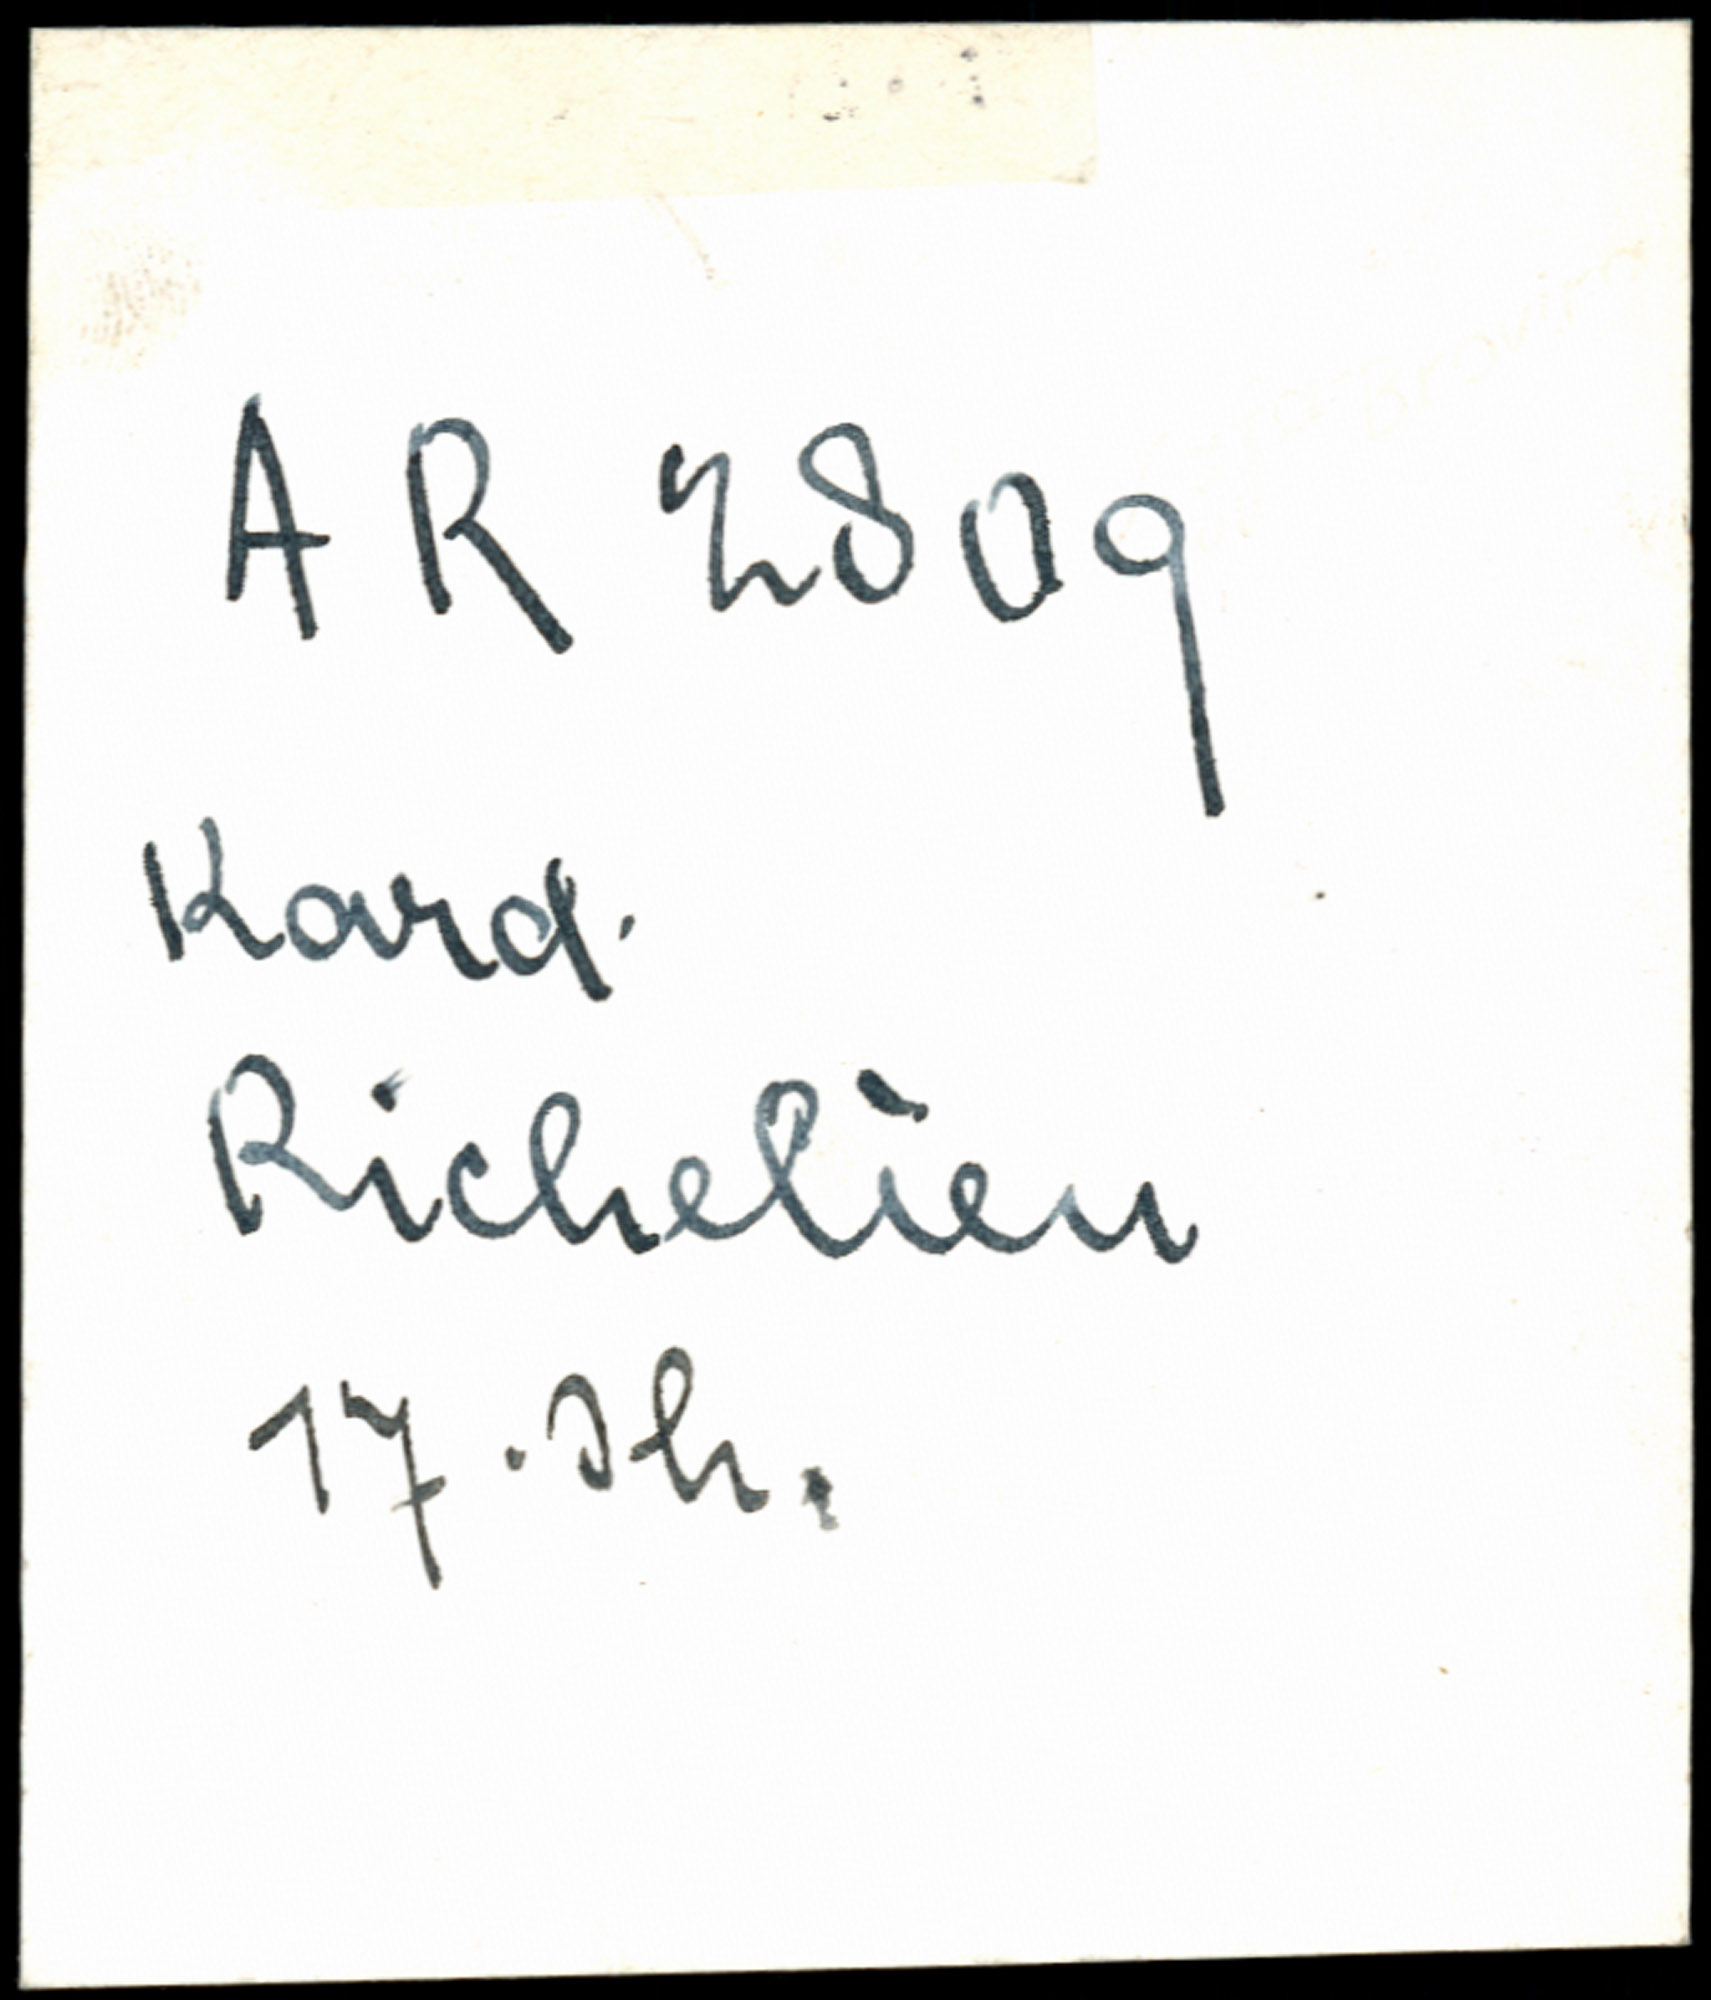 AR 2809
Kard.
Richelieu
17. Jh.